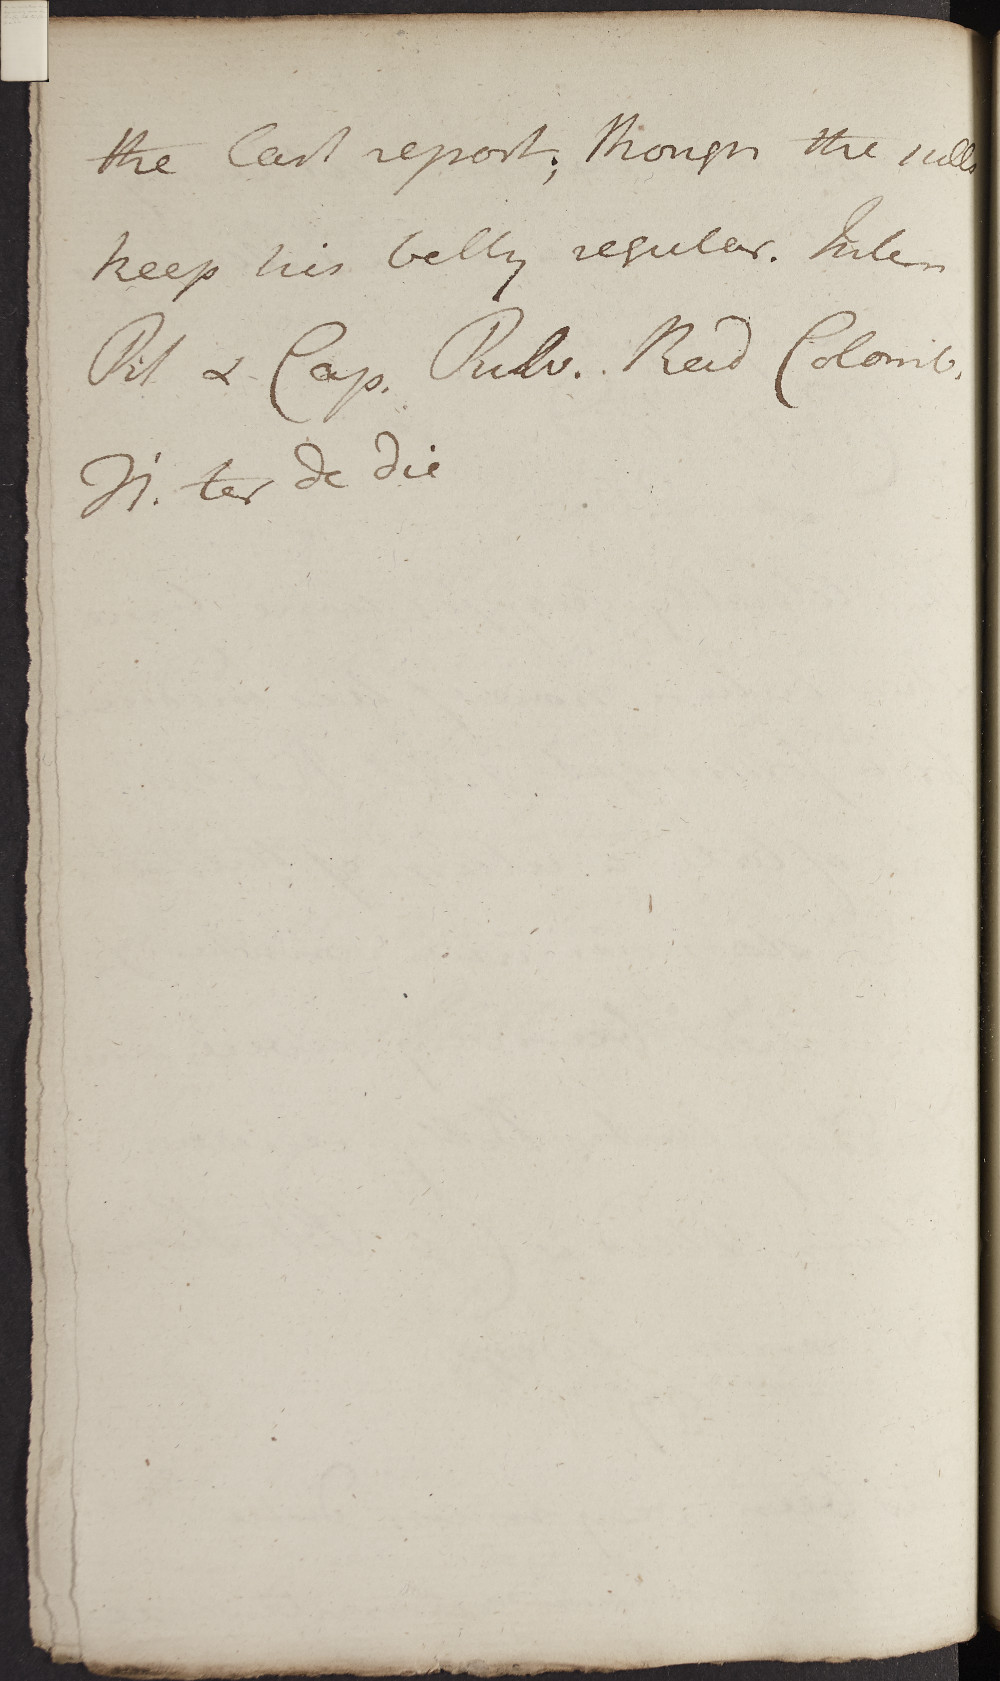 the last report; though the pills
keep his belly regular. Inter
Pil & Cap. Pulv. Rad Colomb.
ʒi. ter de die